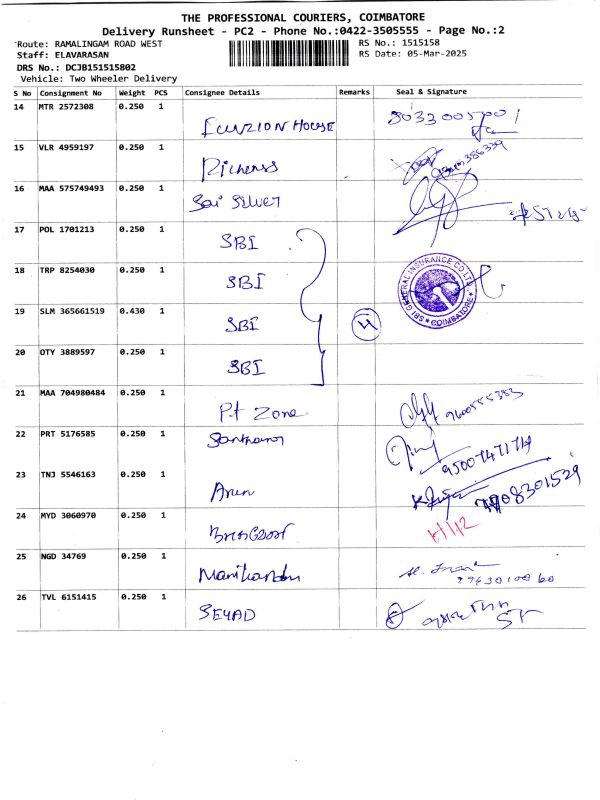 THE PROFESSIONAL COURIERS, COIMBATORE
Delivery Runsheet - PC2 - Phone No.:0422-3505555 - Page No.:2
Route: RAMALINGAM ROAD WEST
RS No.: 1515158
Staff: ELAVARASAN
RS Date: 05-Mar-2025
DRS No.: DCJB151515802
Vehicle: Two Wheeler Delivery
S No Consignment No Weight PCS Consignee Details Remarks Seal & Signature
14 MTR 2572308 0.250 1
HOUSE
15 VLR 4959197 0.250 1
16 MAA 575749493 0.250 1
Sai Silver
17 POL 1701213 0.250 1
SBI
18 TRP 8254030 0.250 1
SBI
SBI GENERAL INSURANCE CO LTD
COIMBATORE
19 SLM 365661519 0.430 1
SBI 4
20 OTY 3889597 0.250 1
SBI
21 MAA 704980484 0.250 1
P.t Zone 9600555383
22 PRT 5176585 0.250 1
95007471714
23 TNJ 5546163 0.250 1
Arun
24 MYD 3060970 0.250 1
25 NGD 34769 0.250 1
Manikandan
26 TVL 6151415 0.250 1
SEYAD